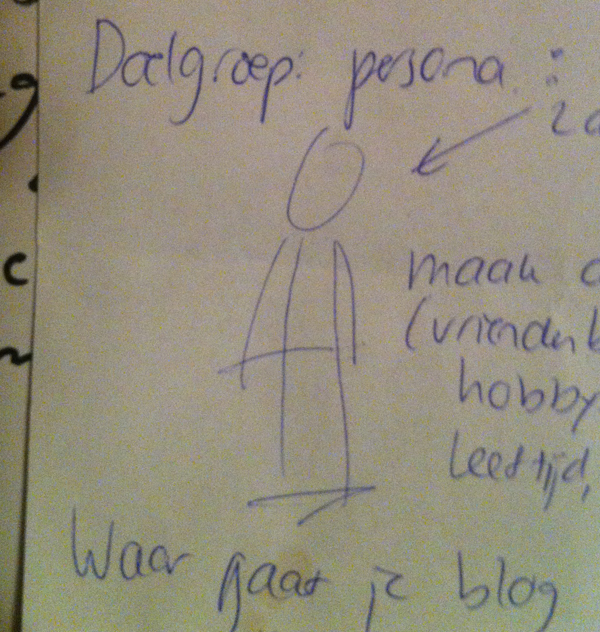 Doelgroep: persona:
maak
(vrienden
hobby
leeftijd,
Waar gaat je blog